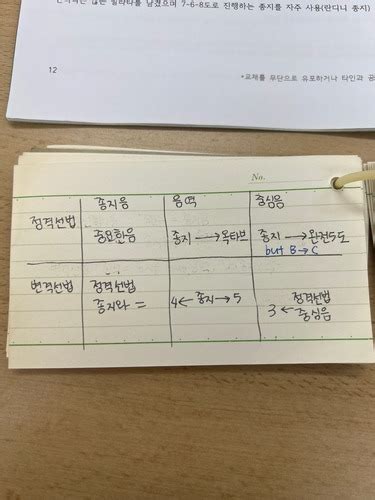 많은 빌라타를 남겼으며 7-6-8도로 진행하는 종지를 자주 사용(란디니 종지)
12
*교재를 무단으로 유포하거나 타인과 공
No.
종지음 음역 중심음
정격선법 중요한음 종지→옥타브 종지→완전5도
but B→C
변격선법 정격선법 종지와 = 4←종지→5 3←정격선법 중심음